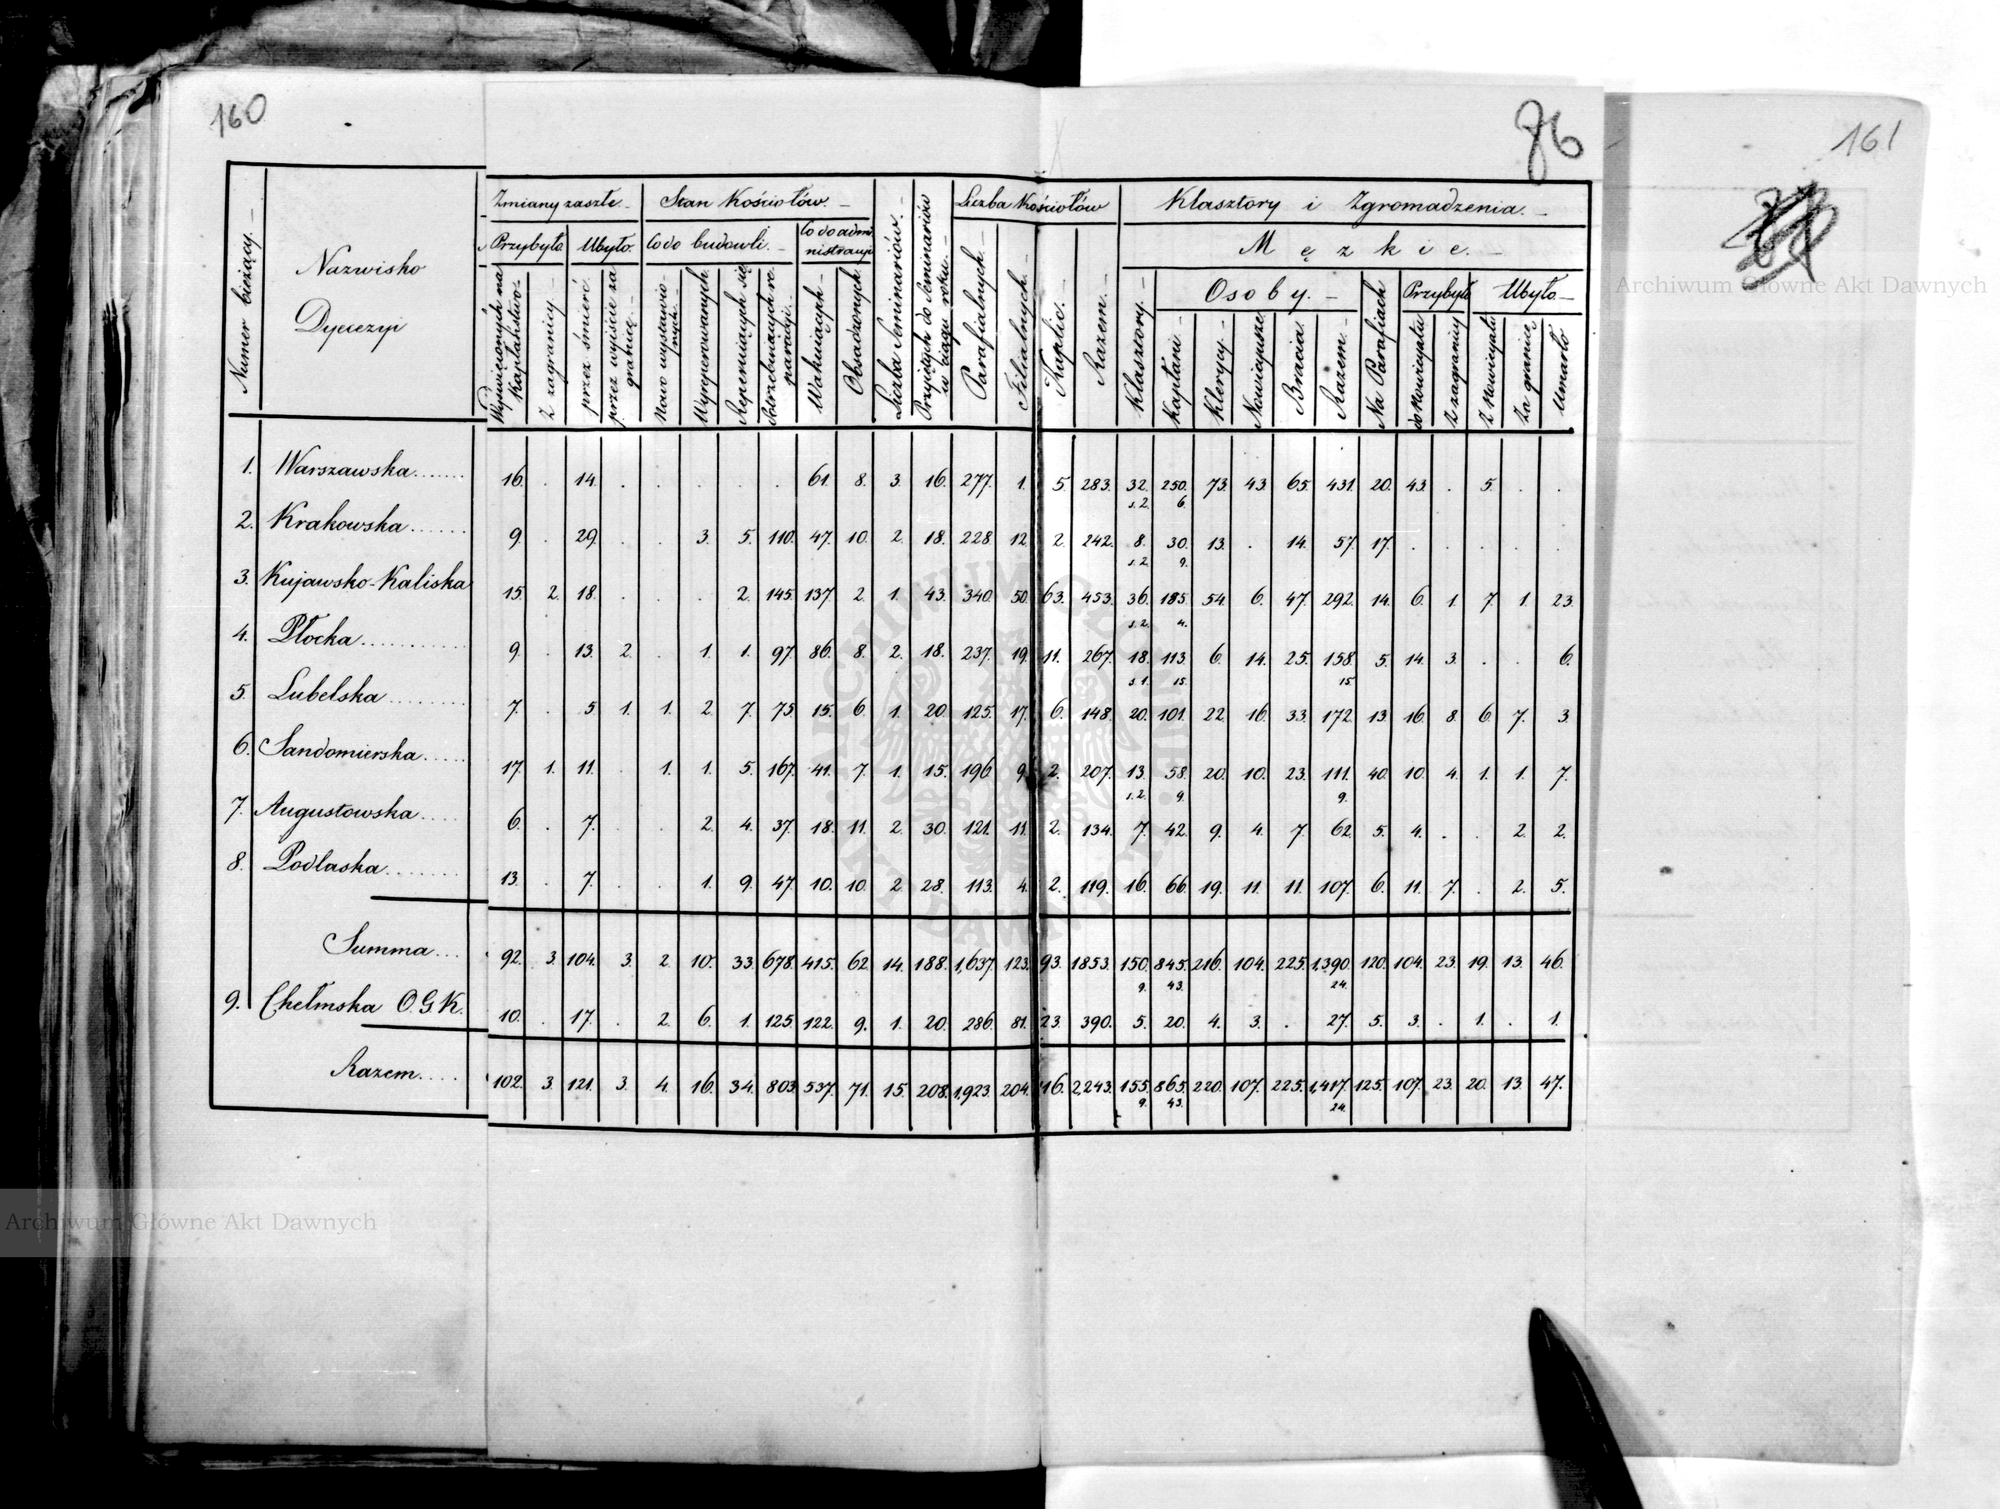 160
86
161
Numer bieżący.
Nazwisko
Dyecezyi
Zmiany zaszłe.
Przybyło
Wyświęconych na kapłaństwo
Z zagranicy
Ubyło
przez śmierć
przez wyjście za granicę.
Stan Kościołów.
Co do budowli.
Nowo wystawionych.
Wyreperowanych
Reperujących się
Potrzebujących reparacyi.
Co do administracyi
Wakujących
Obsadzonych
Liczba Seminariów.
Przyjętych do Seminariów w ciągu roku.
Liczba Kościołów
Parafialnych.
Filialnych.
Kaplic.
Razem.
Klasztory i Zgromadzenia.
Męzkie.
Klasztory.
Osoby.
Kapłani
Klerycy.
Nowicyusze
Bracia.
Razem.
Na Parafiach
Przybyło
do Nowicyatu
Z zagranicy
Ubyło
Z Nowicyatu
Za granicę
Umarło
1. Warszawska 16. . 14. . . . . . 61. 8. 3. 16. 277. 1. 5. 283. 32. 250. 73. 43 65. 431. 20. 43. . 5. . .
s.2. 6.
2. Krakowska 9. . 29. . . 3. 5. 110. 47. 10. 2. 18. 228. 12. 2. 242. 8. 30. 13. . 14. 57. 17. . . . . .
s.2. 9.
3. Kujawsko-Kaliska 15. 2. 18. . . . 2. 145. 137. 2. 1. 43. 340. 50. 63. 453. 36. 185. 54. 6. 47. 292. 14. 6. 1. 7. 1. 23.
s.2. 4.
4. Płocka 9. . 13. 2. . 1. 1. 97. 86. 8. 2. 18. 237. 19. 11. 267. 18. 113. 6. 14. 25. 158. 5. 14. 3. . . 6.
s.1. 15. 15.
5. Lubelska 7. . 5. 1. 1. 2. 7. 75. 15. 6. 1. 20. 125. 17. 6. 148. 20. 101. 22. 16. 33. 172. 13 16. 8. 6. 7. 3
6. Sandomierska 17. 1. 11. . 1. 1. 5. 167. 41. 7. 1. 15. 196. 9. 2. 207. 13. 58. 20. 10. 23. 111. 40. 10. 4. 1. 1. 7.
s.2. 9. 9.
7. Augustowska 6. . 7. . . 2. 4. 37. 18. 11. 2. 30. 121. 11. 2. 134. 7. 42. 9. 4. 7. 62. 5. 4. . . 2. 2.
8. Podlaska 13. . 7. . . 1. 9. 47. 10. 10. 2. 28. 113. 4. 2. 119. 16. 66. 19. 11. 11. 107. 6. 11. 7. . 2. 5.
Summa 92. 3. 104. 3. 2. 10. 33. 678. 415. 62. 14. 188. 1,637. 123. 93. 1853. 150. 845. 216. 104. 225. 1,390. 120. 104. 23. 19. 13. 46.
9. 43. 24.
9. Chełmska O.G.K. 10. . 17. . 2. 6. 1. 125. 122. 9. 1. 20. 286. 81. 23. 390. 5. 20. 4. 3. . 27. 5. 3. . 1. . 1.
Razem 102. 3. 121. 3. 4. 16. 34. 803. 537. 71. 15. 208. 1,923. 204. 16. 2,243. 155. 865. 220. 107. 225. 1,417. 125. 107. 23. 20. 13. 47.
9. 43. 24.
Archiwum Główne Akt Dawnych
Archiwum Główne Akt Dawnych
ARCHIWUM GŁÓWNE AKT DAWNYCH